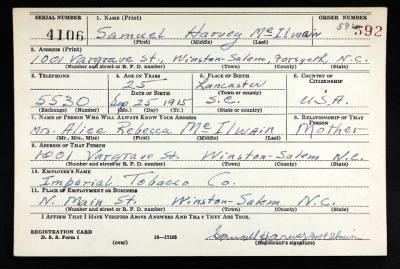 SERIAL NUMBER 1. NAME (Print) ORDER NUMBER
4106 Samuel Harvey McIlwain 592 592
(First) (Middle) (Last)
2. ADDRESS (Print)
1001 Vargrave St., Winston-Salem, Forsyth N.C.
(Number and street or R. F. D. number) (Town) (County) (State)
3. TELEPHONE 4. AGE IN YEARS 5. PLACE OF BIRTH 6. COUNTRY OF CITIZENSHIP
25 Lancaster
DATE OF BIRTH (Town or county)
5530 25 1915 S.C. U.S.A.
(Exchange) (Number) (Mo.) (Day) (Yr.) (State or country)
7. NAME OF PERSON WHO WILL ALWAYS KNOW YOUR ADDRESS 8. RELATIONSHIP OF THAT PERSON
Mrs. Alice Rebecca McIlwain Mother
(Mr., Mrs., Miss) (First) (Middle) (Last)
9. ADDRESS OF THAT PERSON
1001 Vargrave St. Winston-Salem N.C.
(Number and street or R. F. D. number) (Town) (County) (State)
10. EMPLOYER'S NAME
Imperial Tobacco Co.
11. PLACE OF EMPLOYMENT OR BUSINESS
N. Main St. Winston-Salem N.C.
(Number and street or R. F. D. number) (Town) (County) (State)
I AFFIRM THAT I HAVE VERIFIED ABOVE ANSWERS AND THAT THEY ARE TRUE.
REGISTRATION CARD
D. S. S. Form 1 (over) 16-17105 Samuel Harvey McIlwain
(Registrant's signature)